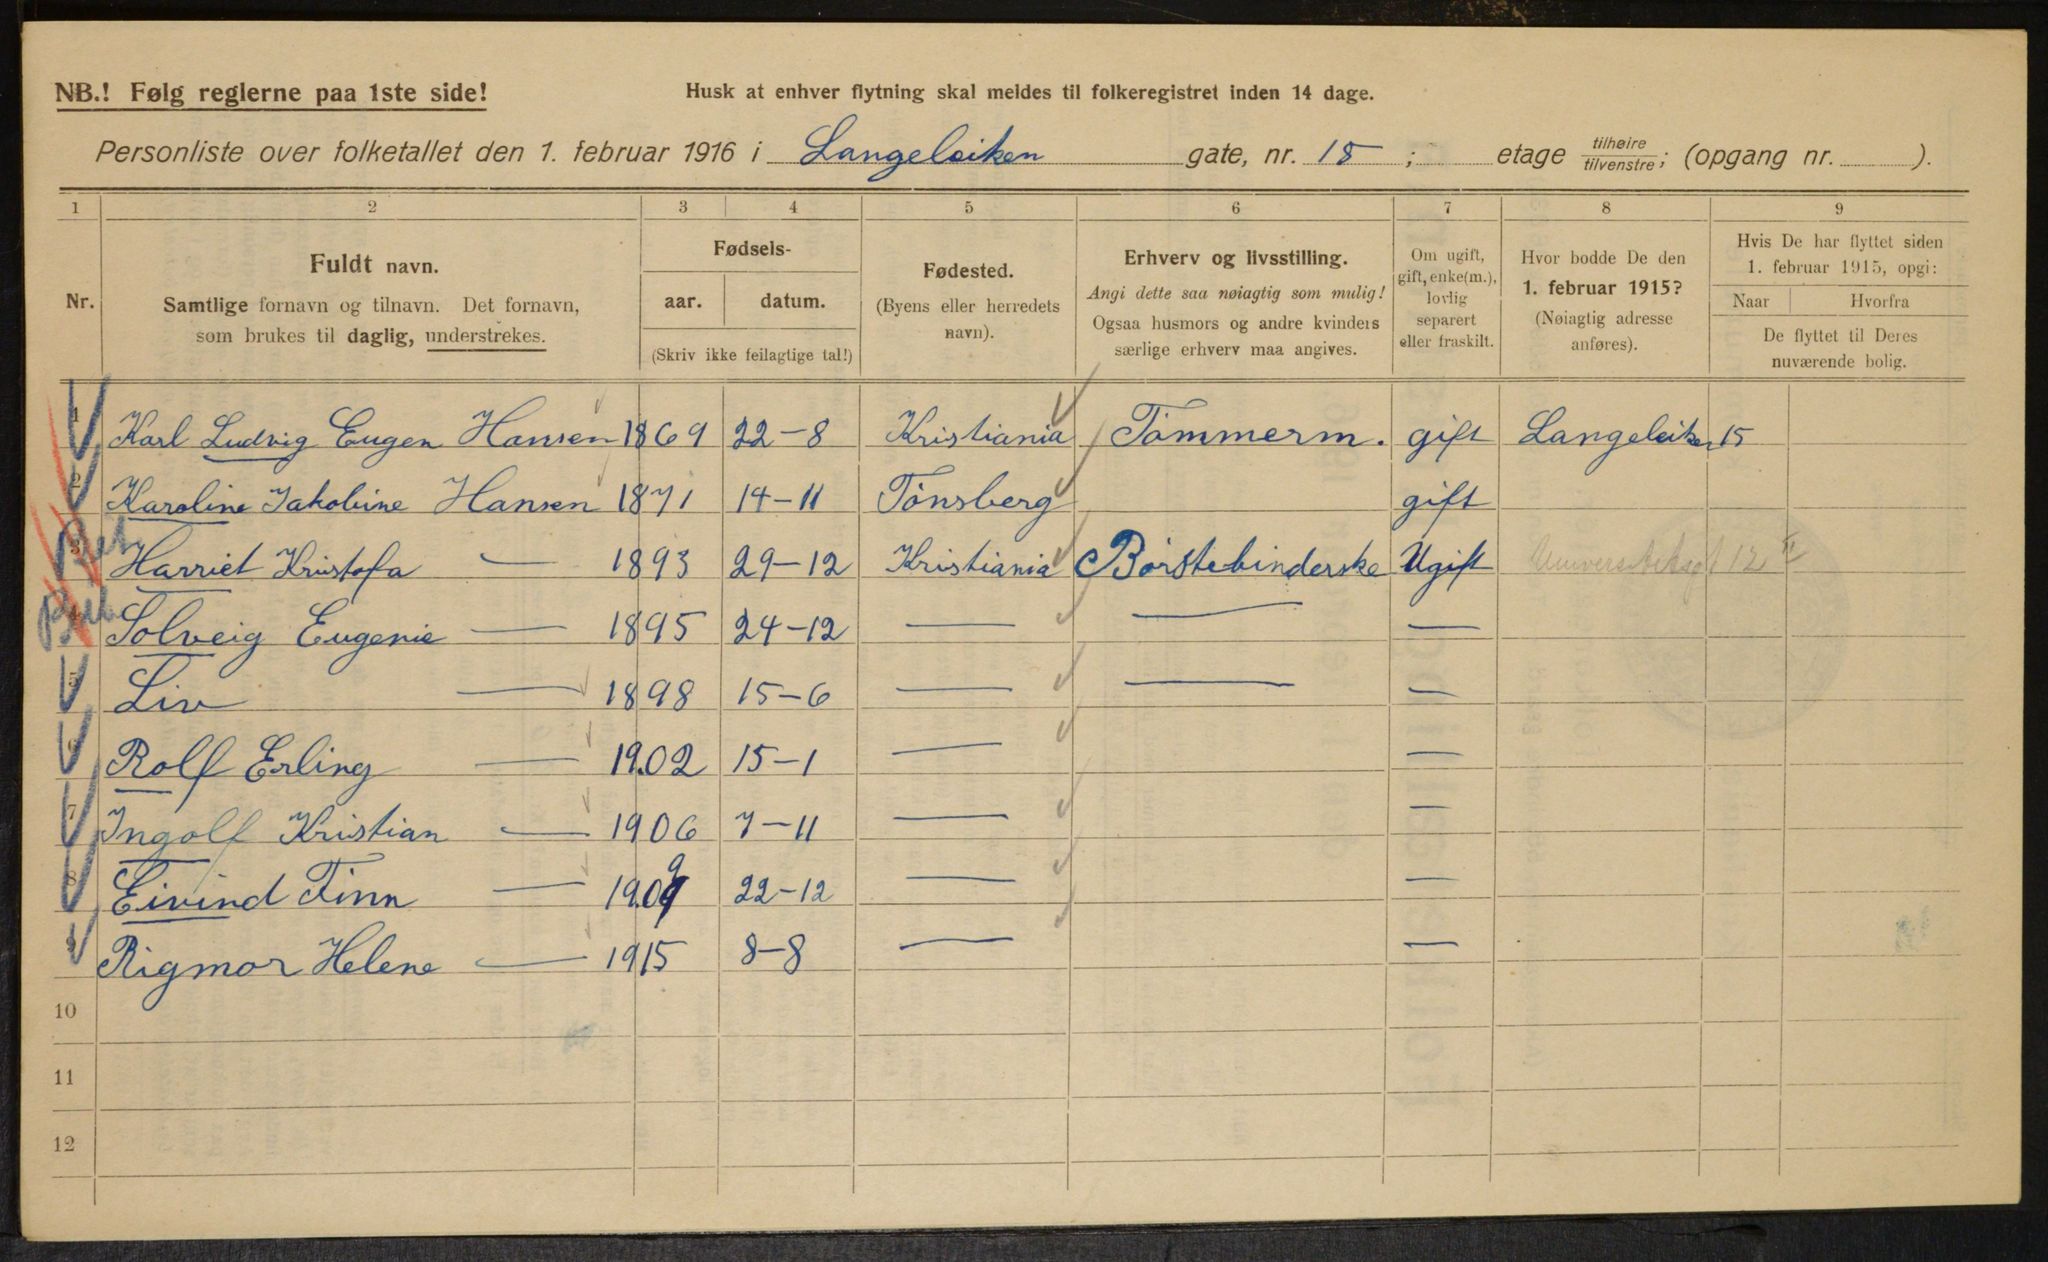 NB.! Følg reglerne paa 1ste side!
Husk at enhver flytning skal meldes til folkeregistret inden 14 dage.
Personliste over folketallet den 1. februar 1916 i Langeleiken gate, nr. 15; etage tilhøire/tilvenstre; (opgang nr. ).
1 2 3 4 5 6 7 8 9
Nr.
Fuldt navn.
Samtlige fornavn og tilnavn. Det fornavn,
som brukes til daglig, understrekes.
Fødsels-
aar. datum.
(Skriv ikke feilagtige tal!)
Fødested.
(Byens eller herredets
navn).
Erhverv og livsstilling.
Angi dette saa nøiagtig som mulig!
Ogsaa husmors og andre kvinders
særlige erhverv maa angives.
Om ugift,
gift, enke(m.),
lovlig
separert
eller fraskilt.
Hvor bodde De den
1. februar 1915?
(Nøiagtig adresse
anføres).
Hvis De har flyttet siden
1. februar 1915, opgi:
Naar Hvorfra
De flyttet til Deres
nuværende bolig.
1 Karl Ludvig Eugen Hansen 1869 22-8 Kristiania Tömmerm. gift Langeleiken 15
2 Karoline Jakobine Hansen 1871 14-11 Tönsberg gift
3 Harriet Kristofa — 1893 29-12 Kristiania Börstebinderske Ugift Universitetsgt 12 II
4 Solveig Eugenie — 1895 24-12 — — —
5 Liv — 1898 15-6 — — —
6 Rolf Erling — 1902 15-1 — —
7 Ingolf Kristian — 1906 7-11 — —
8 Eivind Finn — 1909 22-12 — —
9 Rigmor Helene — 1915 8-8 — —
10
11
12